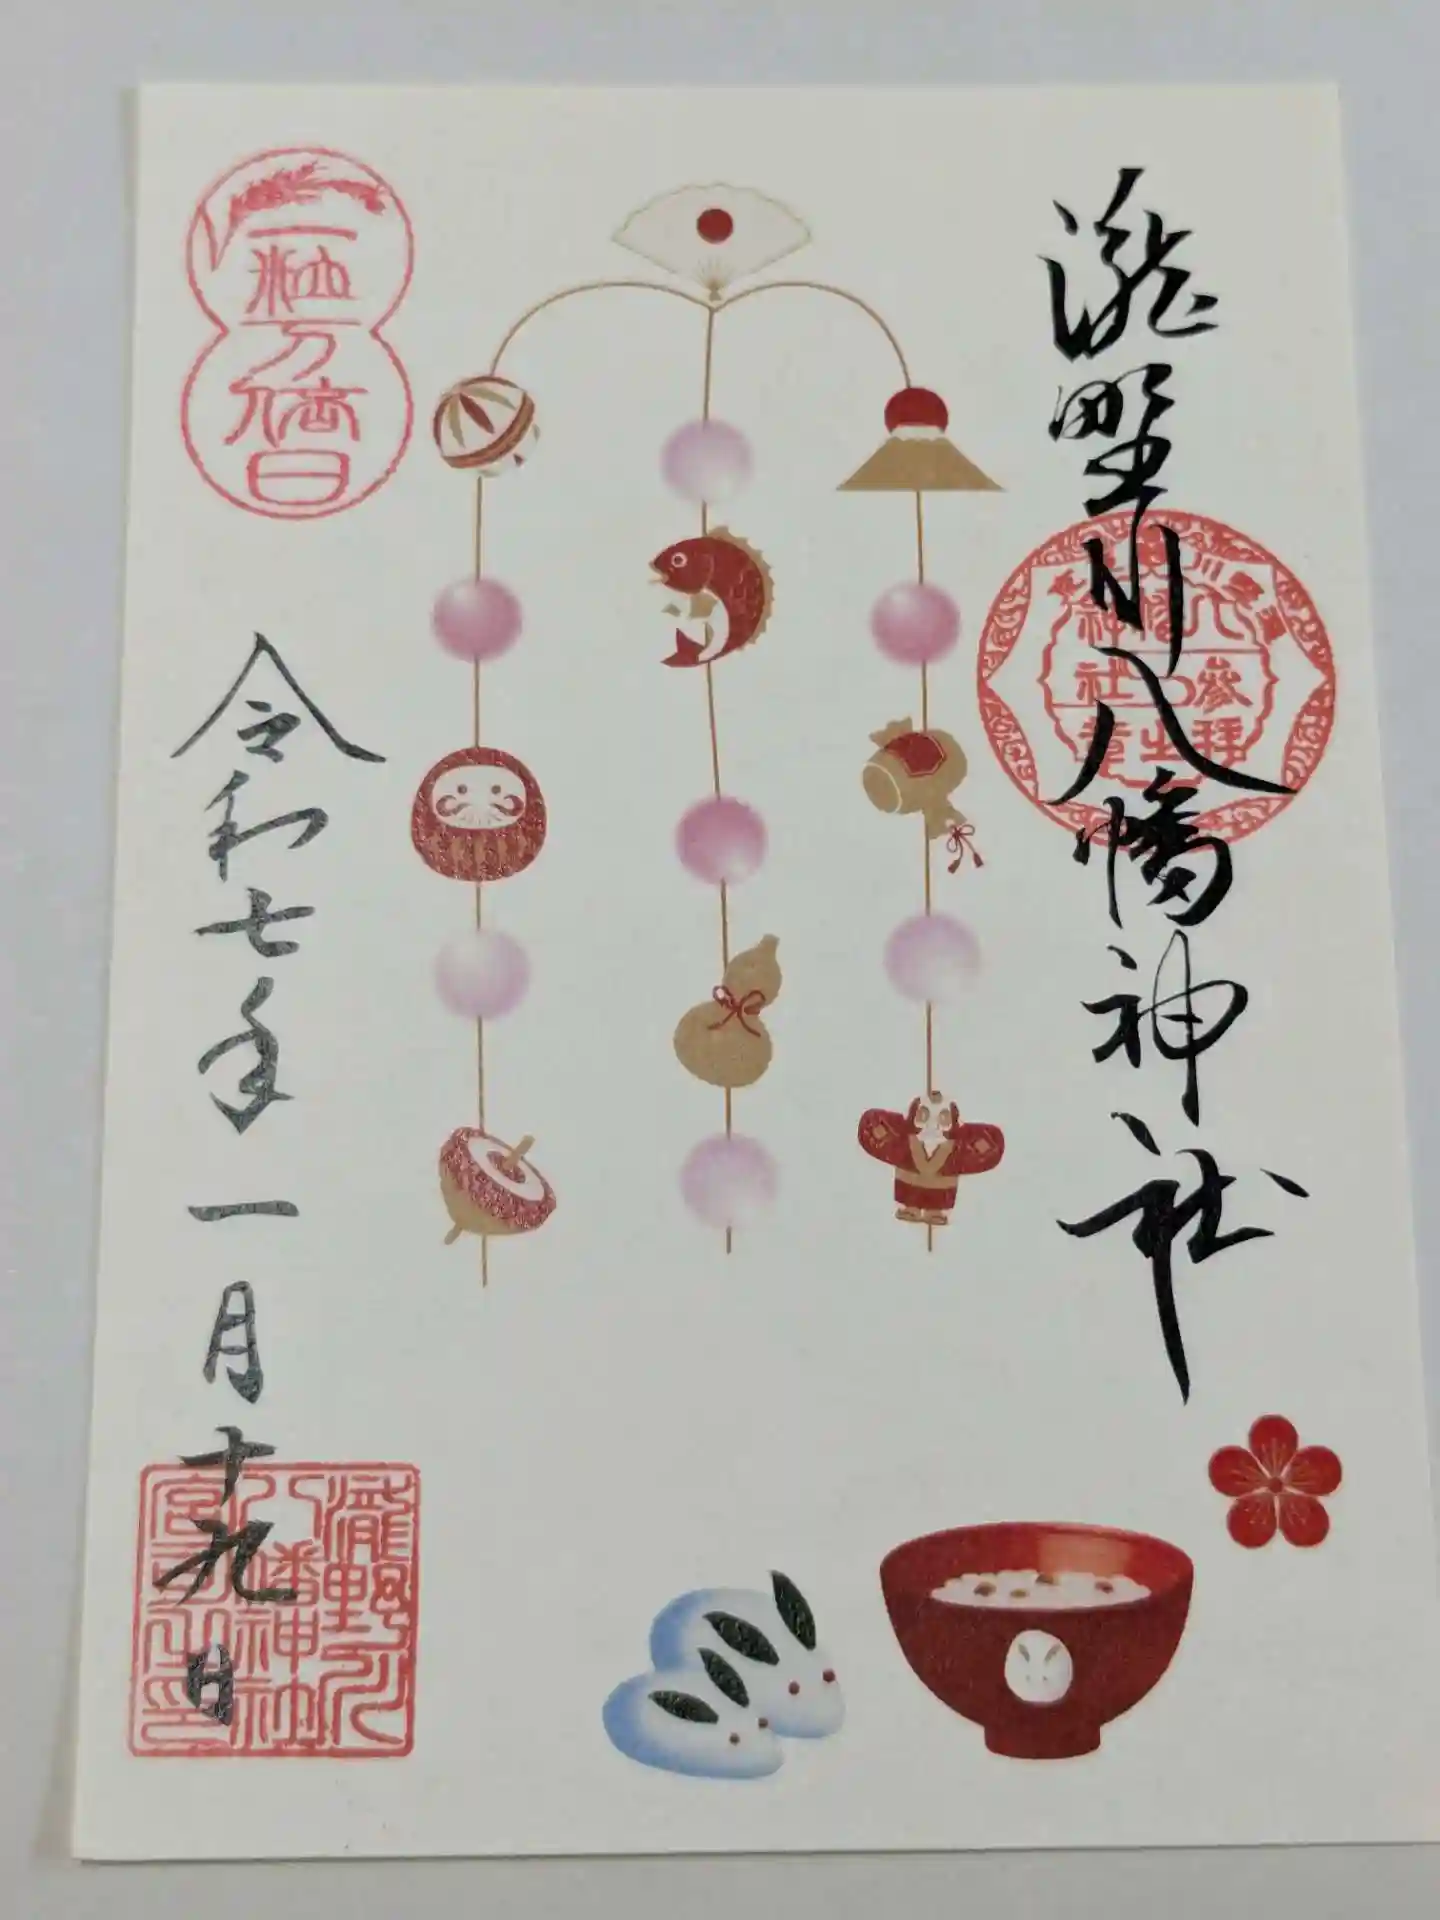 瀧野川八幡神社
八幡神社
参拝之章
一粒万倍日
令和七年一月十九日
瀧野川
八幡神社
宮司之印